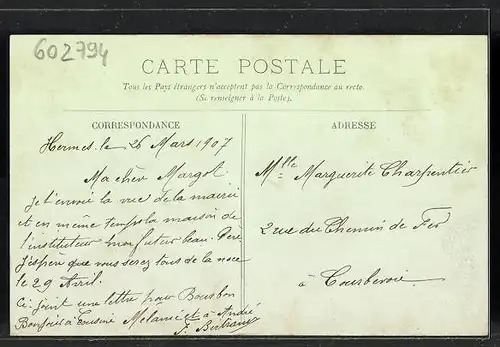 602794
CARTE POSTALE
Tous les Pays étrangers n'acceptent pas la Correspondance au recto.
(Se renseigner à la Poste).
CORRESPONDANCE
Hermes, le 26 Mars 1907
Ma chère Margot
je t'envoi la vue de la mairie
et en même temps la maison de
l'instituteur mon futur beau-Père
J'espère que vous serez tous de la noce
le 29 Avril.
Ci-joint une lettre pour Bourbon
Bonjour à Cousine Mélanie et à André
F. Bertrand
ADRESSE
Mlle Marguerite Charpentier
2 rue du Chemin de Fer
à Courbevoie